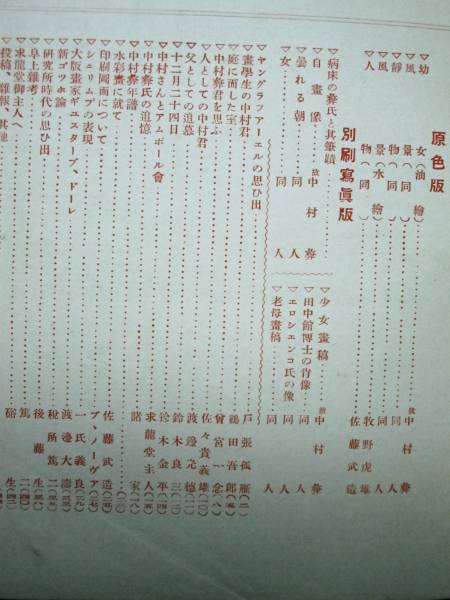 原色版
▽幼女(油繪)………故中村彝
▽風景(同)………同人
▽靜物(同)………同人
▽風景(水繪)………牧野虎雄
▽人物(同)………佐藤武造
別刷寫眞版
▽病床の彝氏と其筆蹟
▽自畫像………故中村彝
▽曇れる朝………同人
▽女………同人
▽少女畫稿………故中村彝
▽田中館博士の肖像………同人
▽エロシェンコ氏の像………同人
▽老母畫稿………同人
▽ヤングラフアーエルの思ひ出………戸張孤雁(二)
▽畫學生の中村君………鶴田吾郎
▽庭に面した室………曾宮一念(八)
▽中村彝君を思ふ………佐々貴義雄
▽人としての中村君………渡邊光德
▽父としての追慕………鈴木良三
▽十二月二十四日………鈴木金平
▽中村さんとアムボール會………求龍堂主人
▽中村彝氏の追憶………諸家
▽中村彝年譜
▽水彩畫に就て………佐藤武造
▽印刷圖面について………ブ、ノーヴァ
▽シェリムプの表現………一氏義良
▽大版畫家ギユスターブ、ドーレ………渡邊大濤
▽新ゴツホ論………税所篤二
▽研究所時代の思ひ出………後藤生
▽早上雜考………篤二
▽求龍堂御主人へ………裕生
▽投稿、雜報、其他